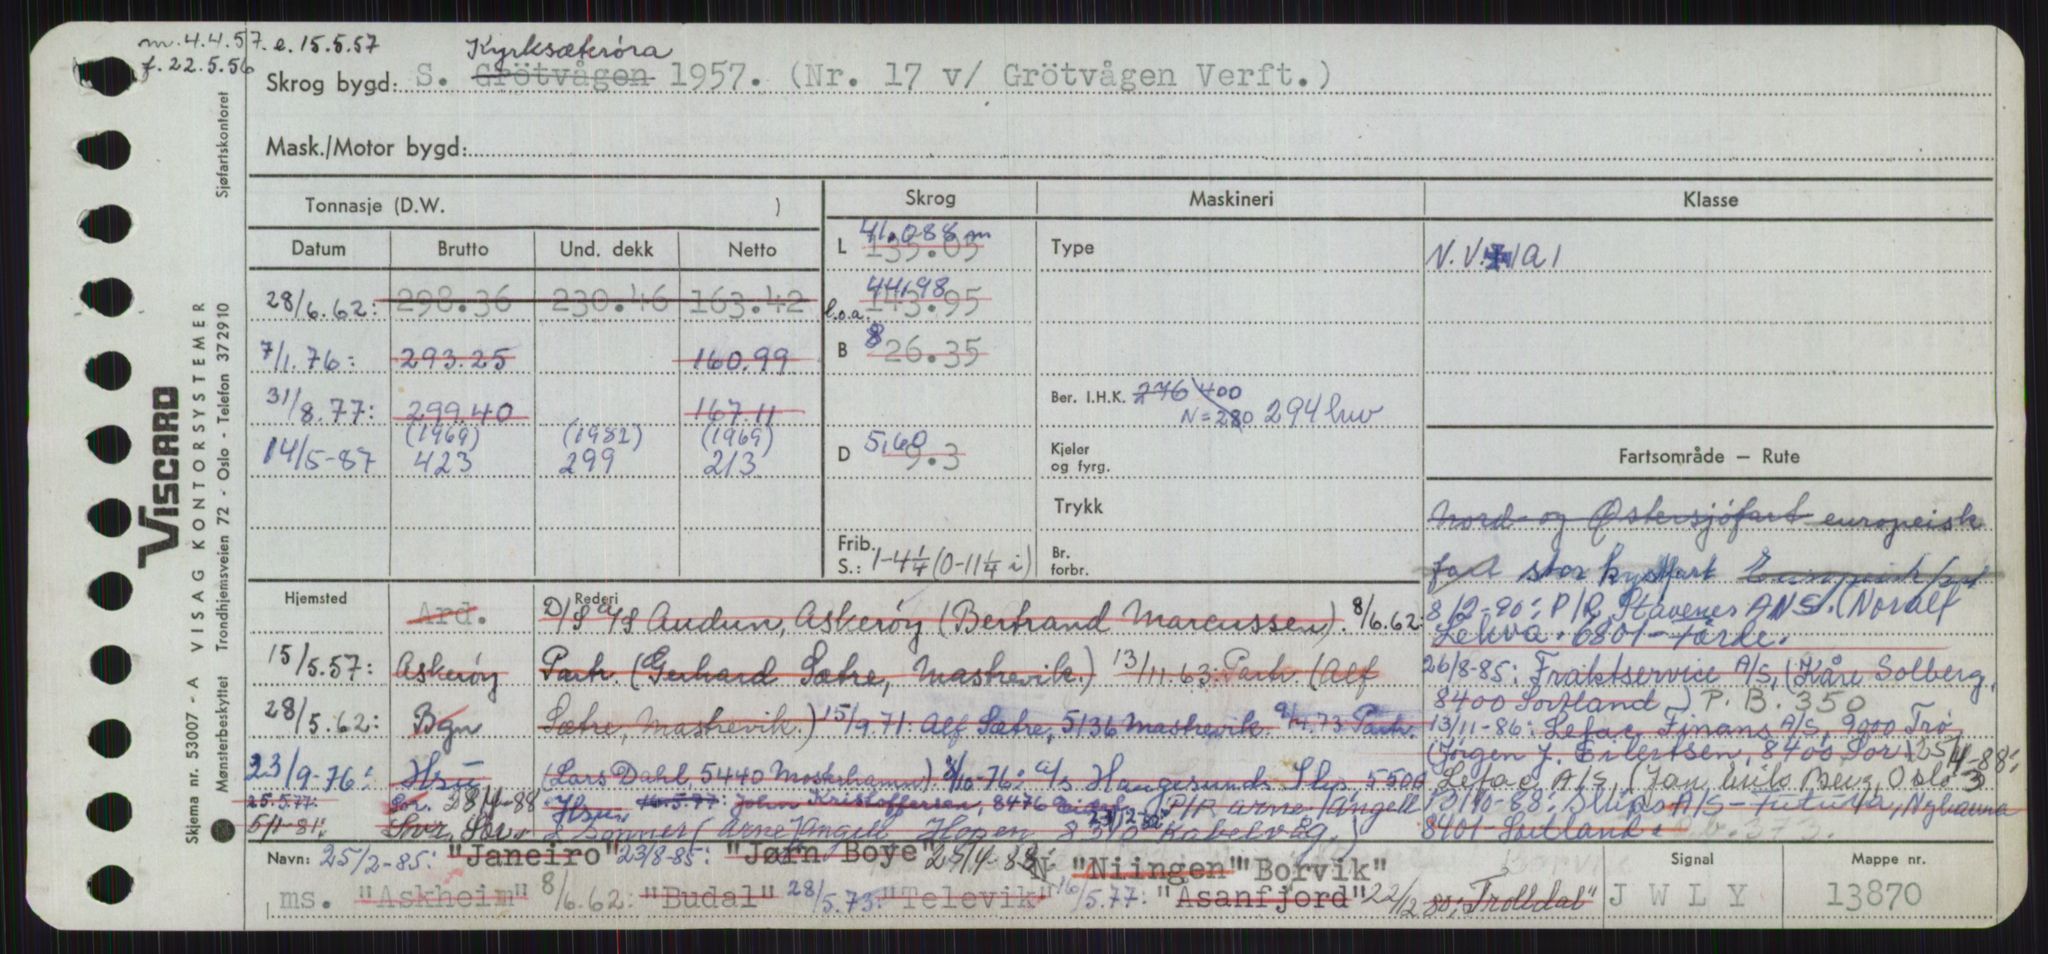 m. 4.4.57. e. 15.5.57
f. 22.5.56
Kyrksæterøra
Skrog bygd: S. Grötvågen 1957. (Nr. 17 v/ Grötvågen Verft.)
Mask./Motor bygd:
Tonnasje (D.W. )
Skrog Maskineri Klasse
Datum Brutto Und. dekk Netto
L 41.088 m
135.05
Type
N.V. 1A1
28/6.62: 298.36 230.46 163.42
l.o.a. 44.98
143.95
7/1.76: 293.25 160.99
B 8 26.35
31/8.77: 299.40 167.11
Ber. I.H.K. 276 400
N=280 294 hw
(1969) (1982) (1969)
14/5-87 423 299 213
D 5.60
9.3
Kjeler
og fyrg.
Fartsområde — Rute
Trykk
Nord- og Østersjöfart europeisk
Frib.
S.: 1-4 1/4 (0-11 1/4 i)
Br.
forbr.
fart stor kystfart Europeisk fart
Hjemsted Rederi
Ard. D/S A/S Audun, Askerøy (Bertrand Marcussen). 8/6.62:
8/2-90: P/R Stavenes ANS. (Noralf
Lekva. 6801-Førde.
15/5.57: Askerøy Partr. (Gerhard Sætre, Mastrevik.) 13/11.63: Partr. (Alf
26/8-85: Fraktservice A/S, (Kåre Solberg,
8400 Sortland) P.B. 350
28/5.62: Bgn Sætre, Mastrevik.) 15/9.71: Alf Sætre, 5136 Mastrevik. 73 Partr.
13/11-86: Lefac Finans A/S, 9000 Trø
(Jørgen J. Eilertsen, 8400 Sor) 25/4-88:
23/9-76: Hsu (Lars Dahl, 5440 Mosterhamn) 8/10-76: A/S Haugesunds Slip, 5500
Lefac A/S, (Jan Berg, Oslo 3
25.5.77: Sor. 28/4-88 Hsu. 16.5.77: John Kristoffersen, 8476 P/R Arne Angell
13/10-88: Slips A/S - Futura, Nyhavna
5/1-81: Svr. Sor. & Sønner (Arne Angell Hopen 8310 Kabelvåg.)
8401-Sortland. P.b. 373.
Navn: 25/2-85: "Janeiro" 23/8-85: "Jørn Boye" 25/4-88: N "Niingen" "Borvik"
Signal Mappe nr.
ms. "Askheim" 8/6.62: "Budal" 28/5.73: "Televik" 16/5.77: "Asanfjord" 22/12 80: "Trolldal" JWLY 13870
VISCARD
Skjema nr. 53007 - A VISAG KONTORSYSTEMER
Mønsterbeskyttet Trondhjemsveien 72 - Oslo - Telefon 372910
Sjøfartskontoret